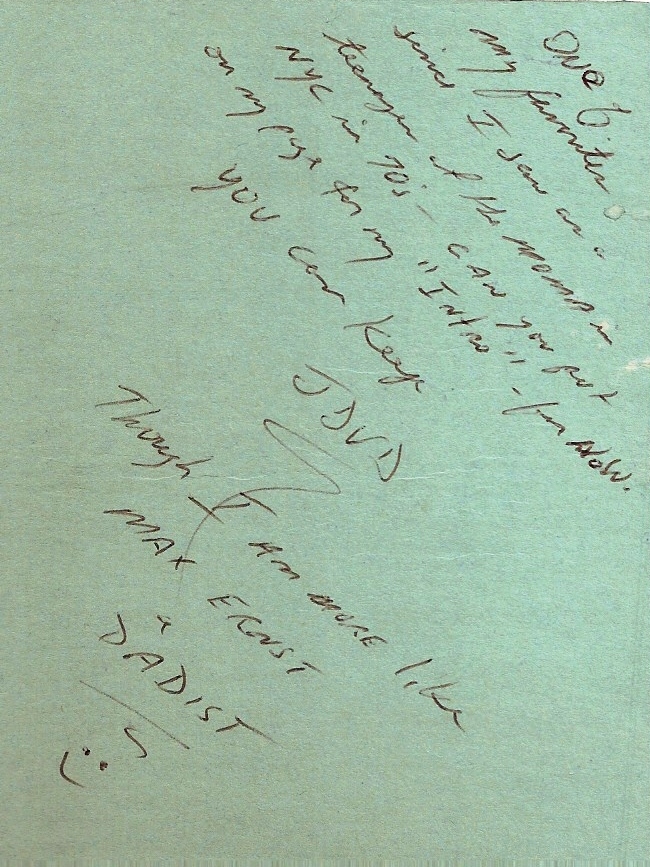 One of
my favorites
since I saw as a
teenager at the MOMA in
NYC in 70's - CAN you put
on my page for my "Intro" - for NOW.
you can keep
JDVD
Though I AM MORE like
MAX ERNST
a
DADIST
:)